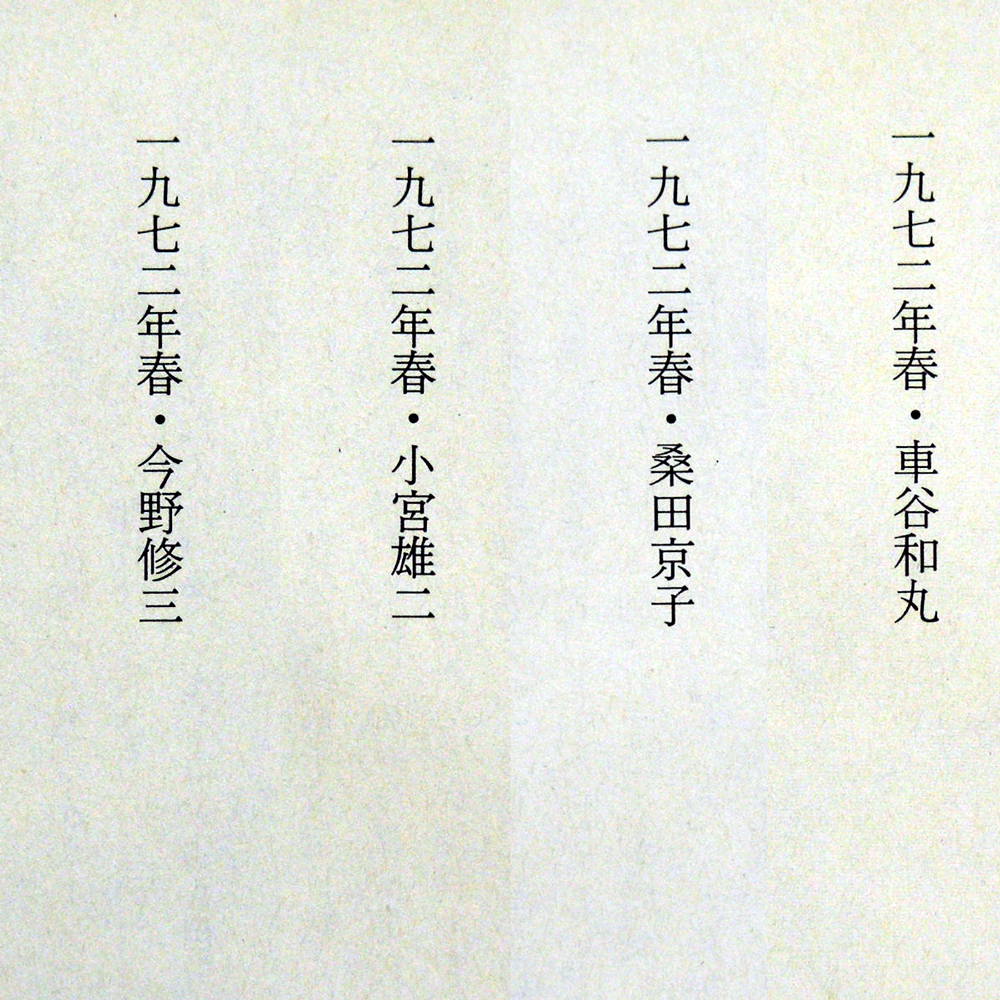 一九七二年春・車谷和丸
一九七二年春・桑田京子
一九七二年春・小宮雄二
一九七二年春・今野修三